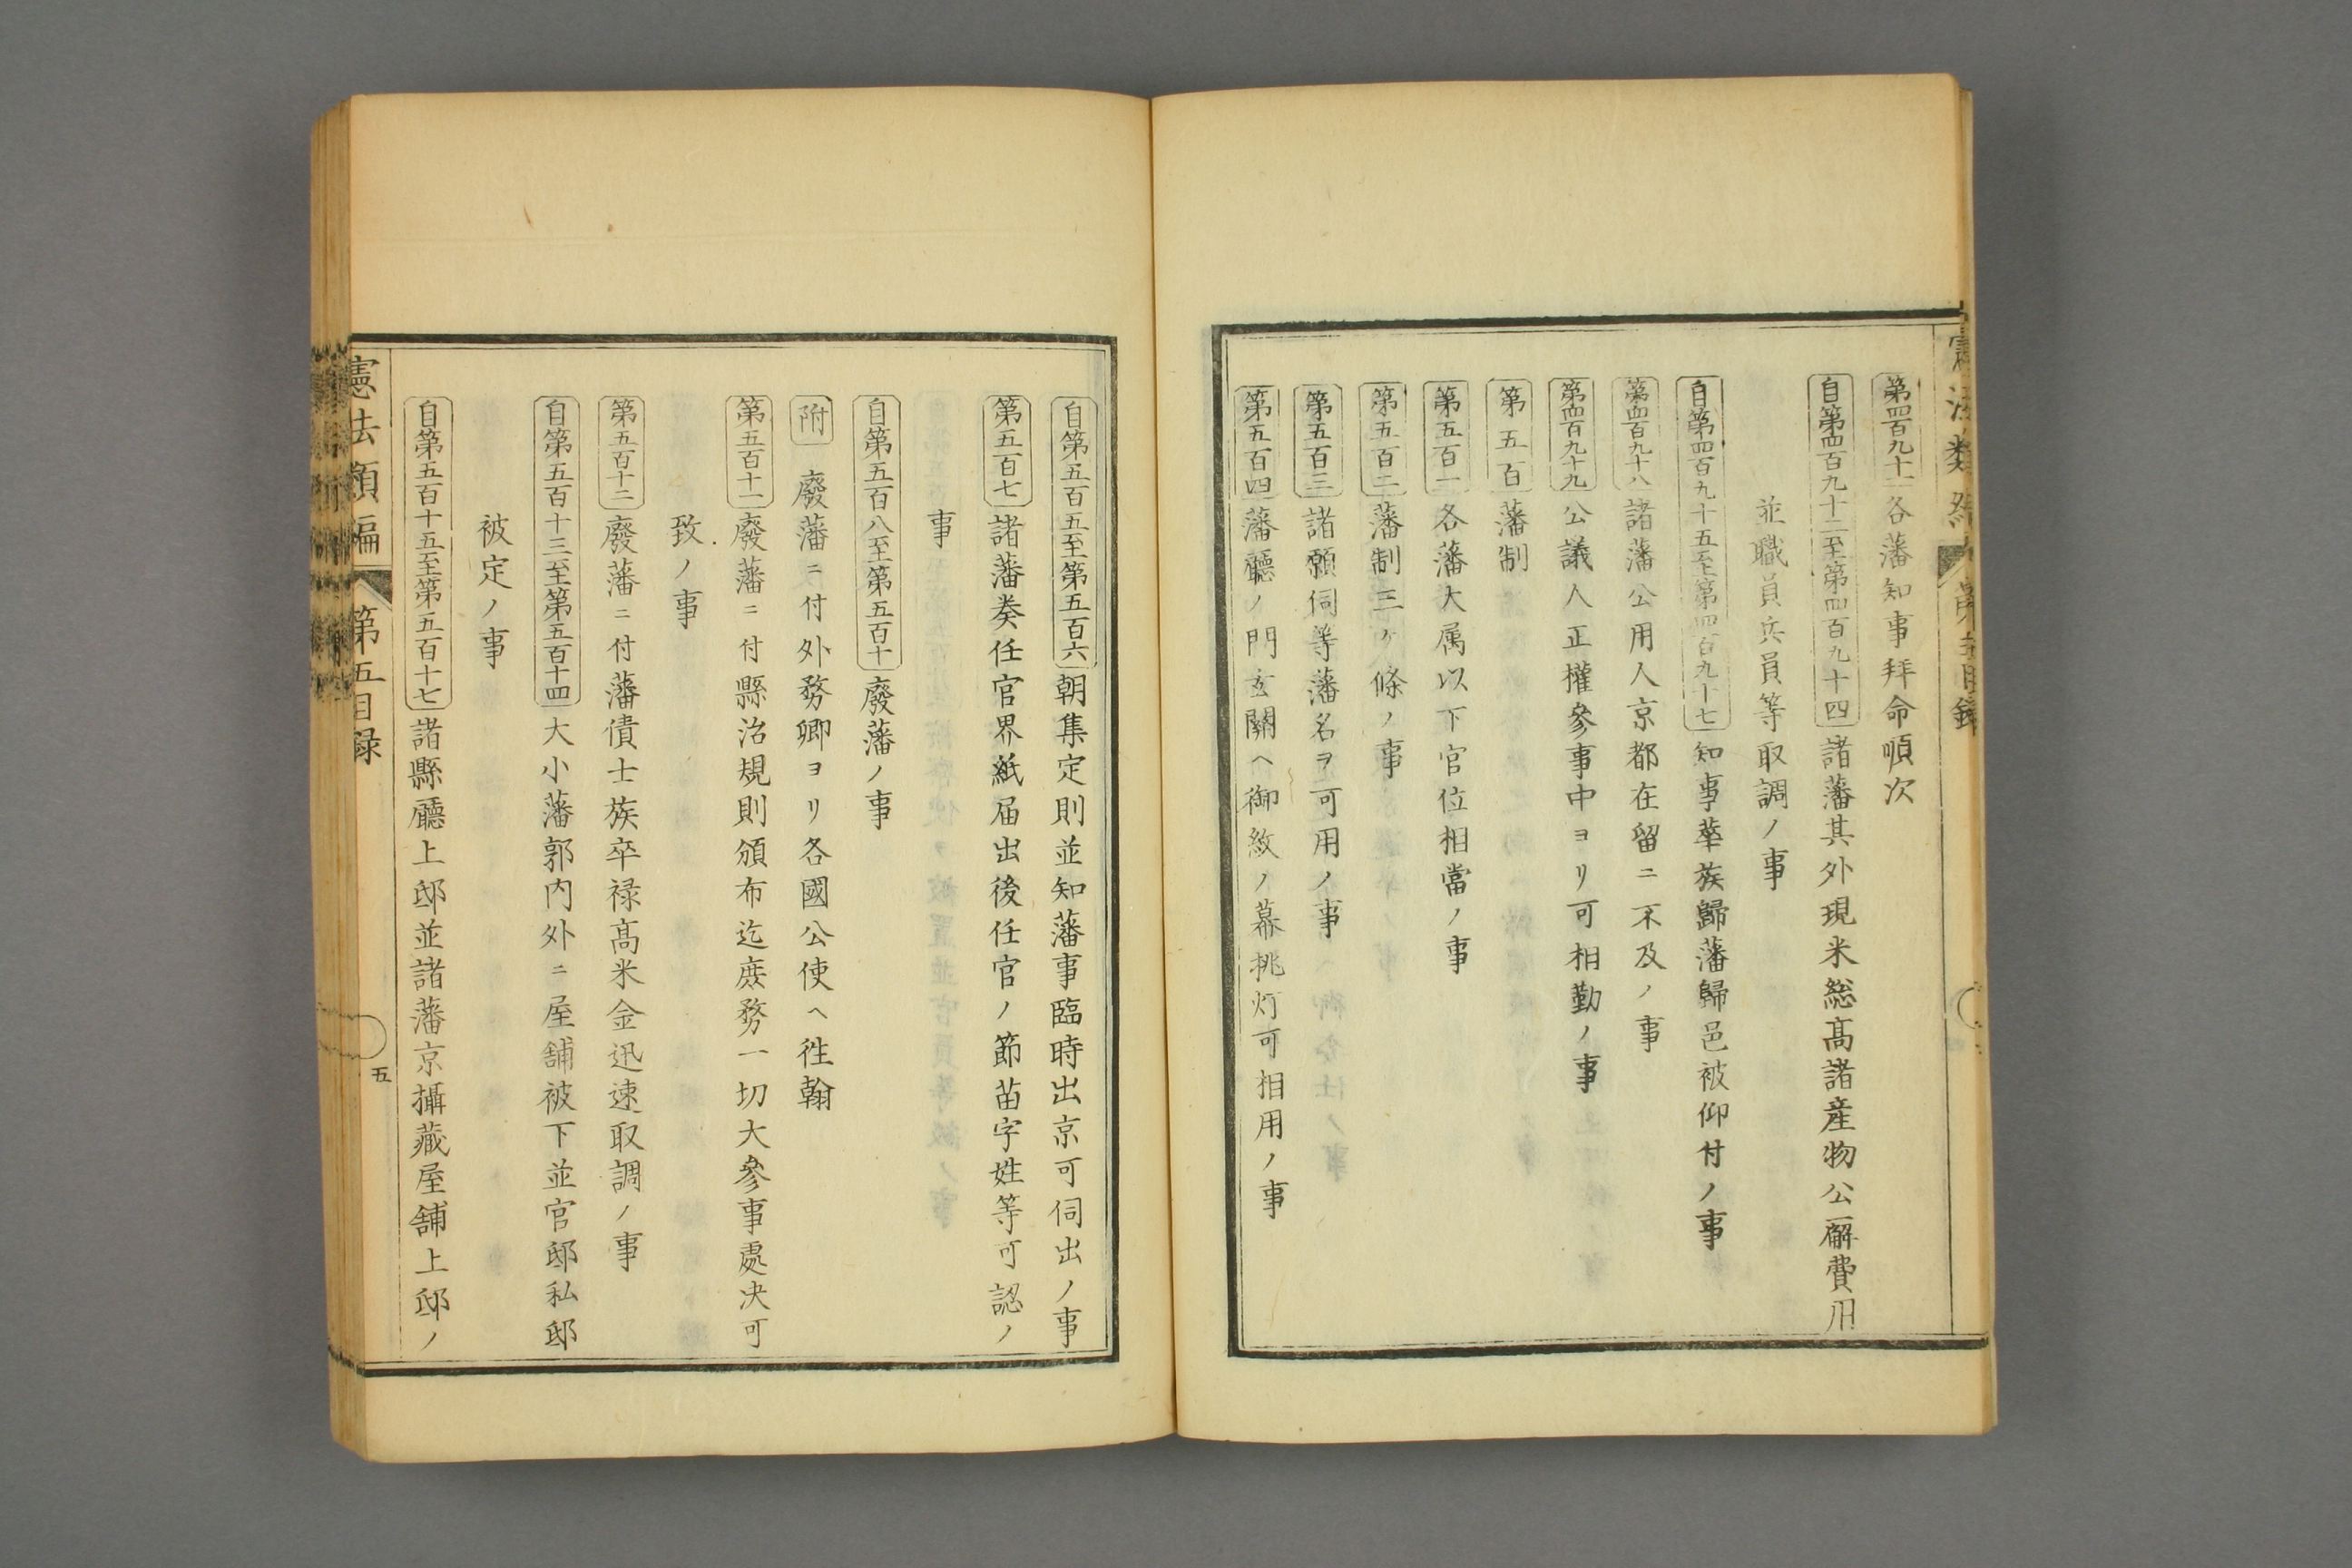 第四百九十一各藩知事拜命順次
自第四百九十二至第四百九十四諸藩其外現米総髙諸産物公廨費用
並職員兵員等取調ノ事
自第四百九十五至第四百九十七知事華族歸藩歸邑被仰付ノ事
第四百九十八諸藩公用人京都在留ニ不及ノ事
第四百九十九公議人正權參事中ヨリ可相勤ノ事
第五百藩制
第五百一各藩大属以下官位相當ノ事
第五百二藩制三ヶ條ノ事
第五百三諸願伺等藩名ヲ可用ノ事
第五百四藩廳ノ門玄關ヘ御紋ノ幕挑灯可相用ノ事
自第五百五至第五百六朝集定則並知藩事臨時出京可伺出ノ事
第五百七諸藩奏任官界紙届出後任官ノ節苗字姓等可認ノ
事
自第五百八至第五百十廢藩ノ事
附 廢藩ニ付外務卿ヨリ各國公使ヘ徃翰
第五百十一廢藩ニ付縣治規則頒布迄庶務一切大參事處決可
致ノ事
第五百十二廢藩ニ付藩債士族卒禄髙米金迅速取調ノ事
自第五百十三至第五百十四大小藩郭内外ニ屋舗被下並官邸私邸
被定ノ事
自第五百十五至第五百十七諸縣廳上邸並諸藩京攝藏屋舗上邸ノ
憲法類編 第五目録
五